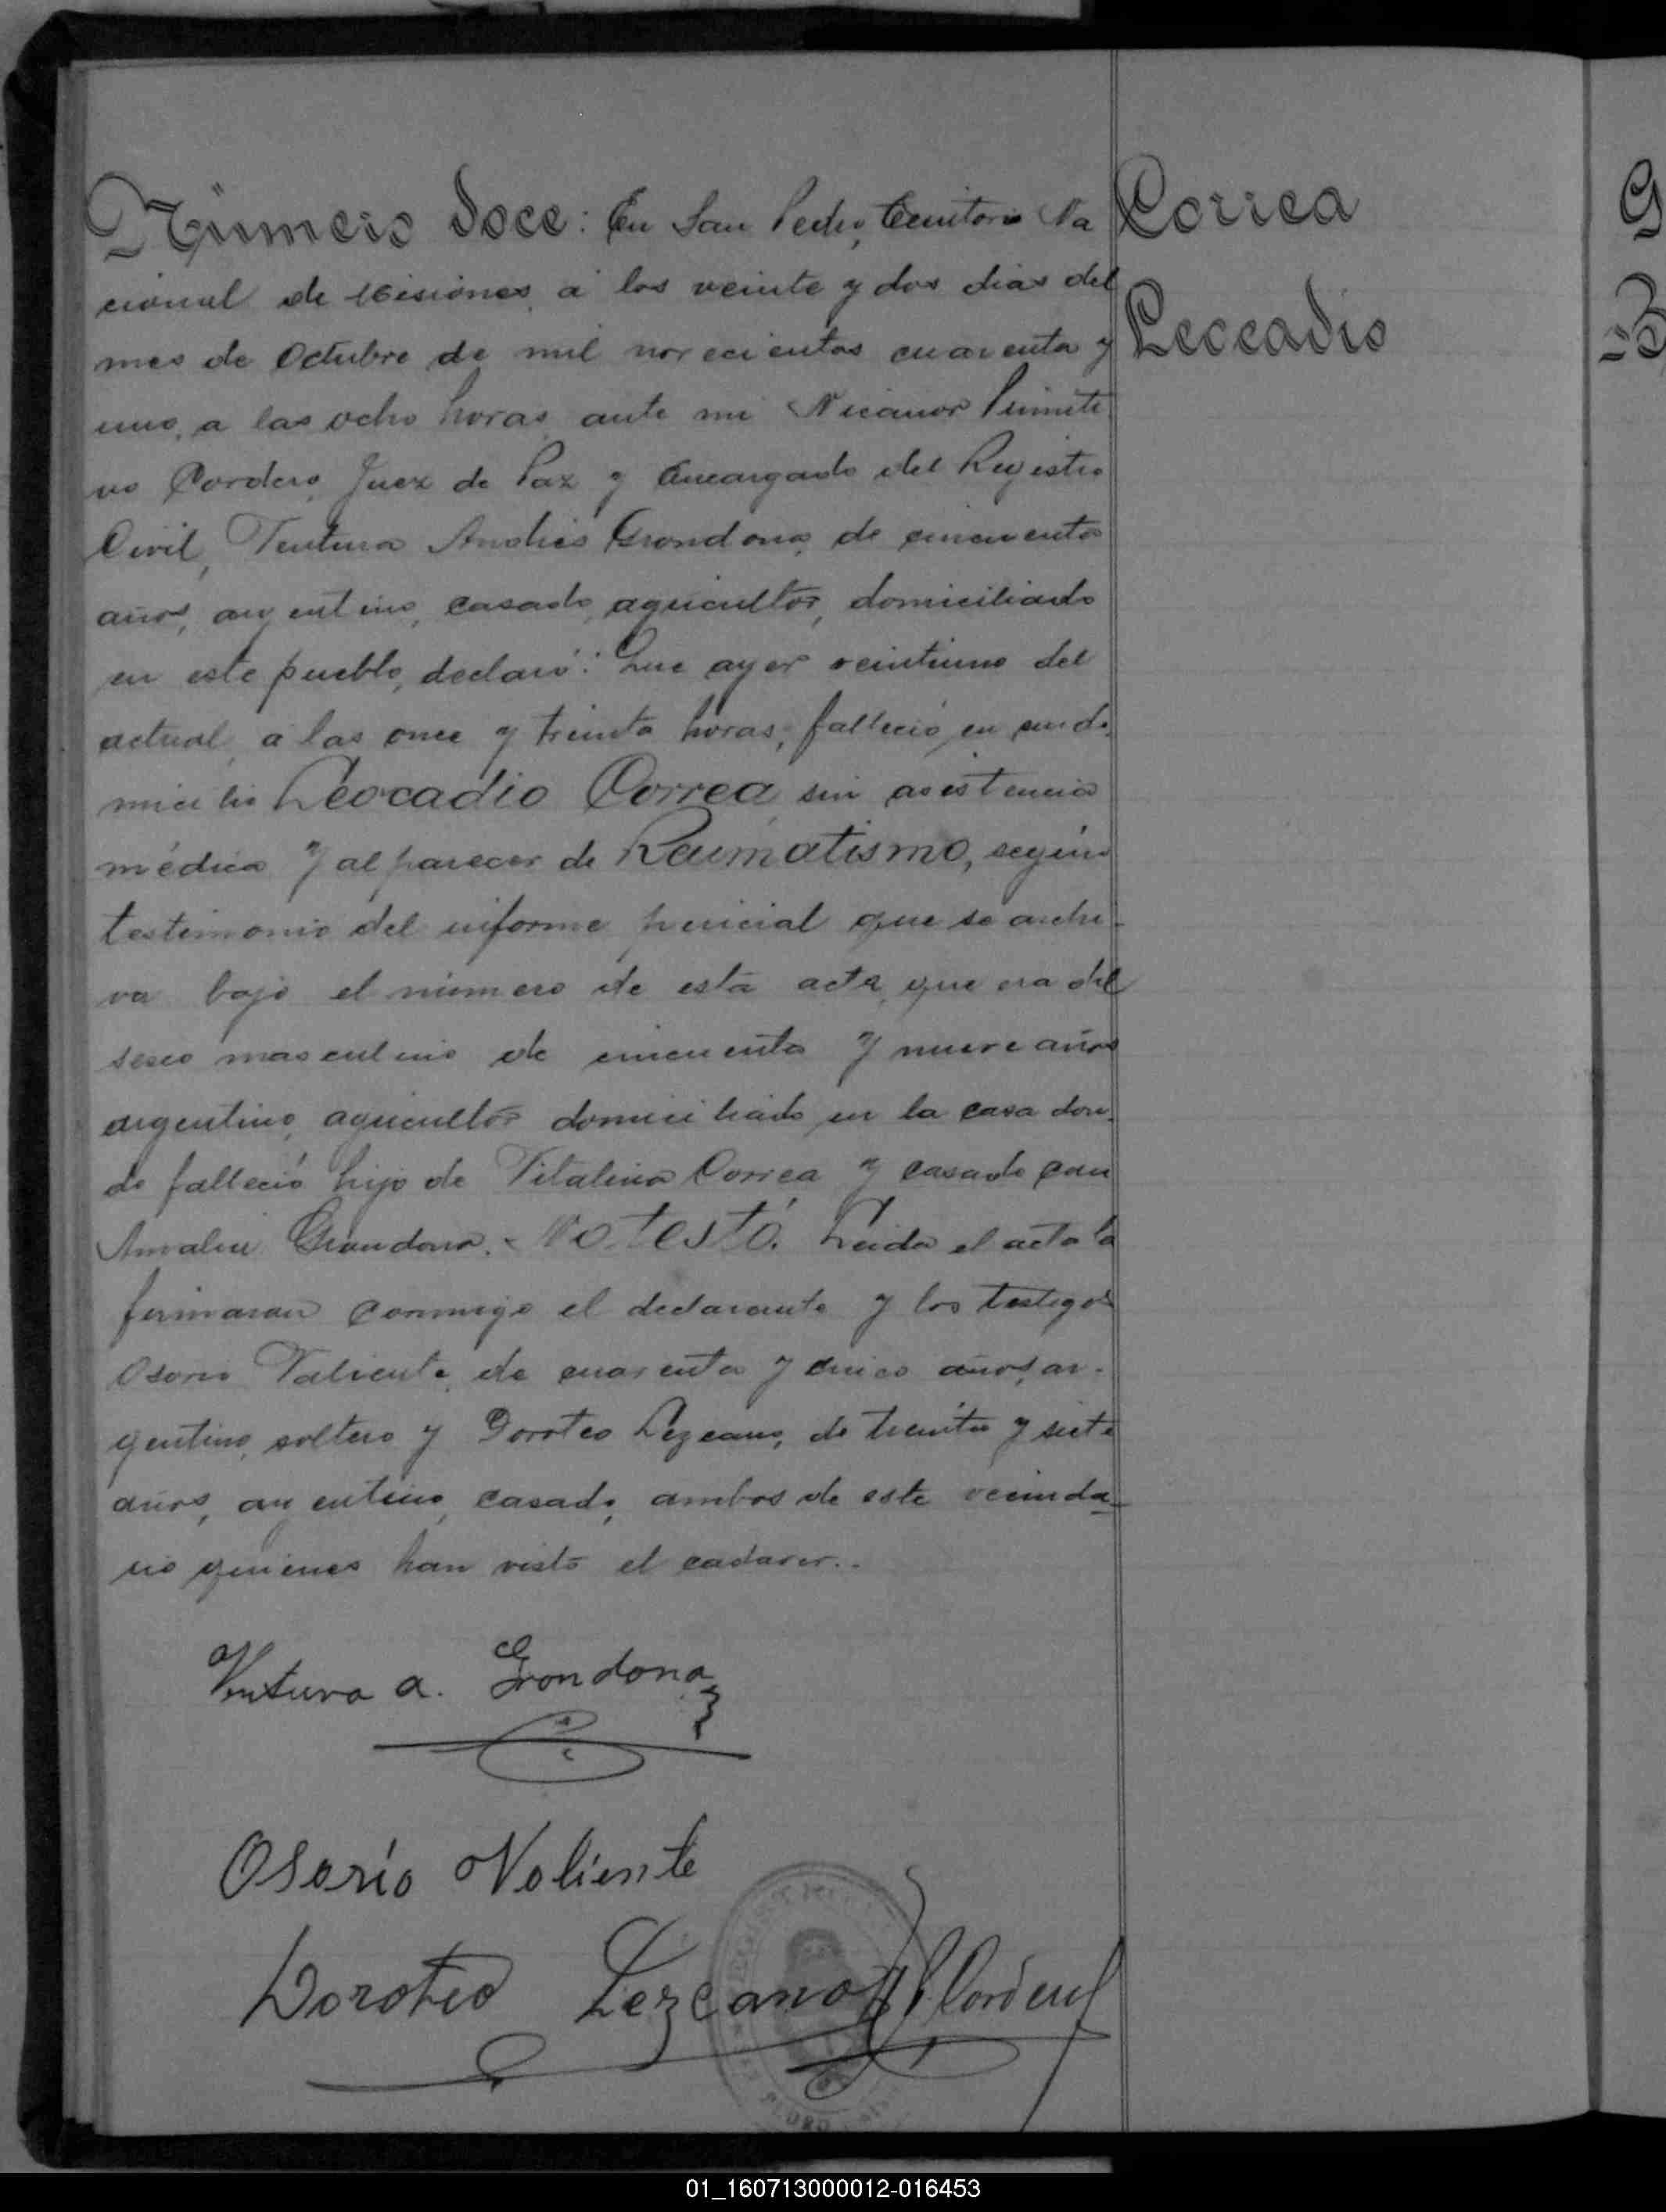 Número Doce: En San Pedro, Territorio Na
cional de Misiones, a los veinte y dos dias del
mes de Octubre de mil novecientos cuarenta y
uno, a las ocho horas, ante mi Nicanor Primiti
vo Cordero, Juez de Paz y Encargado del Registro
Civil, Ventura Andrés Grondona, de cincuenta
años, argentino, casado, agricultor, domiciliado
en este pueblo, declaró: Que ayer veintiuno del
actual, a las once y treinta horas, falleció en su do
micilio Leocadio Correa, sin asistencia
médica y al parecer de Reumatismo, según
testimonio del informe pericial que se archi-
va bajo el número de esta acta, que era del
sexo masculino de cincuenta y nueve años
argentino, agricultor domiciliado en la casa don-
de falleció, hijo de Vitalina Correa y casado con
Grondona. No testó. Leida el acta la
firmaron conmigo el declarante y los testigos
Osorio Valiente, de cuarenta y cinco años, ar-
gentino, soltero y Doroteo Lezcano, de treinta y siete
años, argentino, casado, ambos de este vecinda-
rio quienes han visto el cadaver..
Ventura A. Grondona
Osorio Valiente
Doroteo Lezcano
Correa
Leocadio
PEDRO
01_160713000012-016453